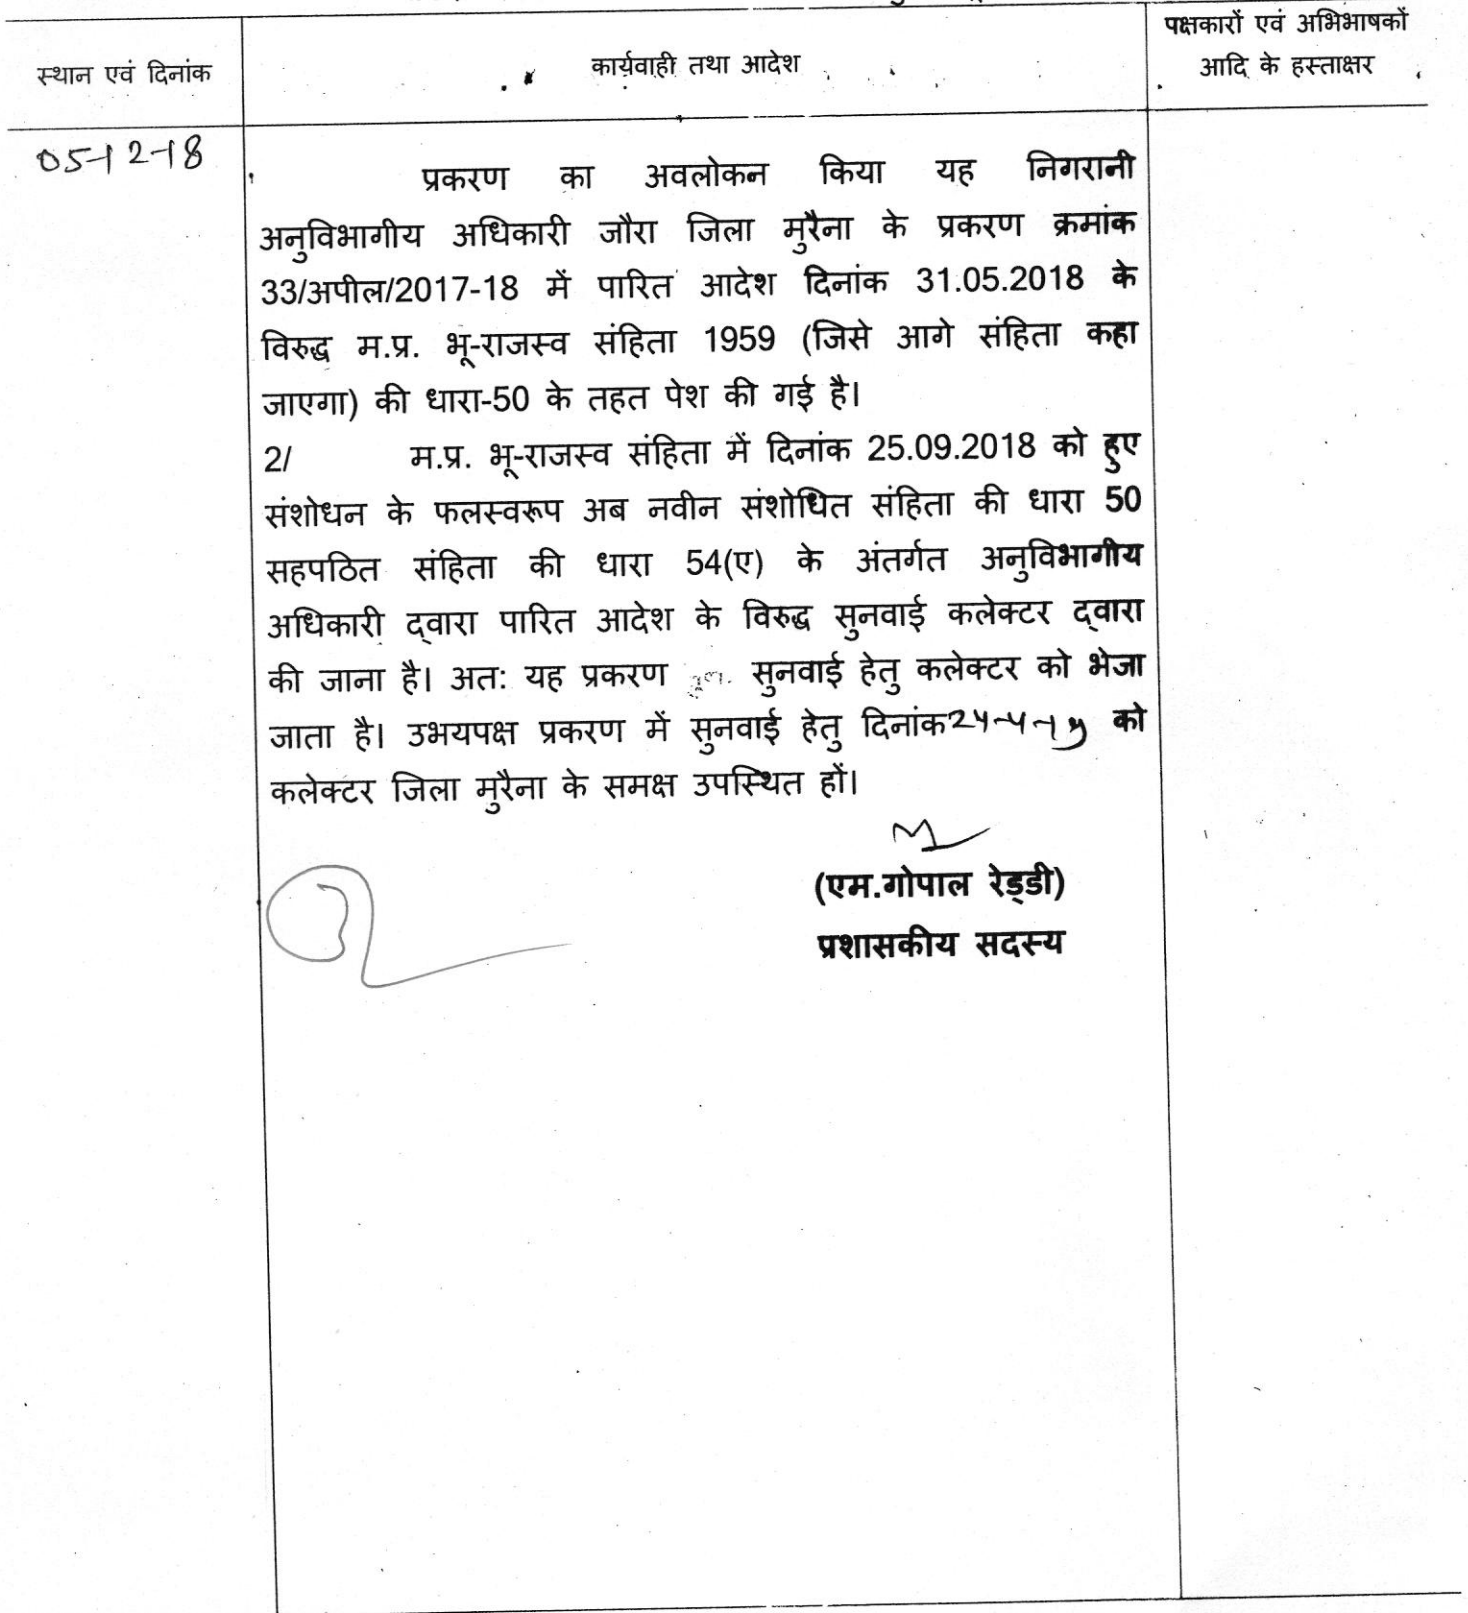 स्थान एवं दिनांक
कार्यवाही तथा आदेश
पक्षकारों एवं अभिभाषकों
आदि के हस्ताक्षर
05-12-18
प्रकरण का अवलोकन किया यह निगरानी
अनुविभागीय अधिकारी जौरा जिला मुरैना के प्रकरण क्रमांक
33/अपील/2017-18 में पारित आदेश दिनांक 31.05.2018 के
विरुद्ध म.प्र. भू-राजस्व संहिता 1959 (जिसे आगे संहिता कहा
जाएगा) की धारा-50 के तहत पेश की गई है।
2/ म.प्र. भू-राजस्व संहिता में दिनांक 25.09.2018 को हुए
संशोधन के फलस्वरूप अब नवीन संशोधित संहिता की धारा 50
सहपठित संहिता की धारा 54(ए) के अंतर्गत अनुविभागीय
अधिकारी द्वारा पारित आदेश के विरुद्ध सुनवाई कलेक्टर द्वारा
की जाना है। अतः यह प्रकरण सुनवाई हेतु कलेक्टर को भेजा
जाता है। उभयपक्ष प्रकरण में सुनवाई हेतु दिनांक को
कलेक्टर जिला मुरैना के समक्ष उपस्थित हों।
(एम.गोपाल रेड्डी)
प्रशासकीय सदस्य